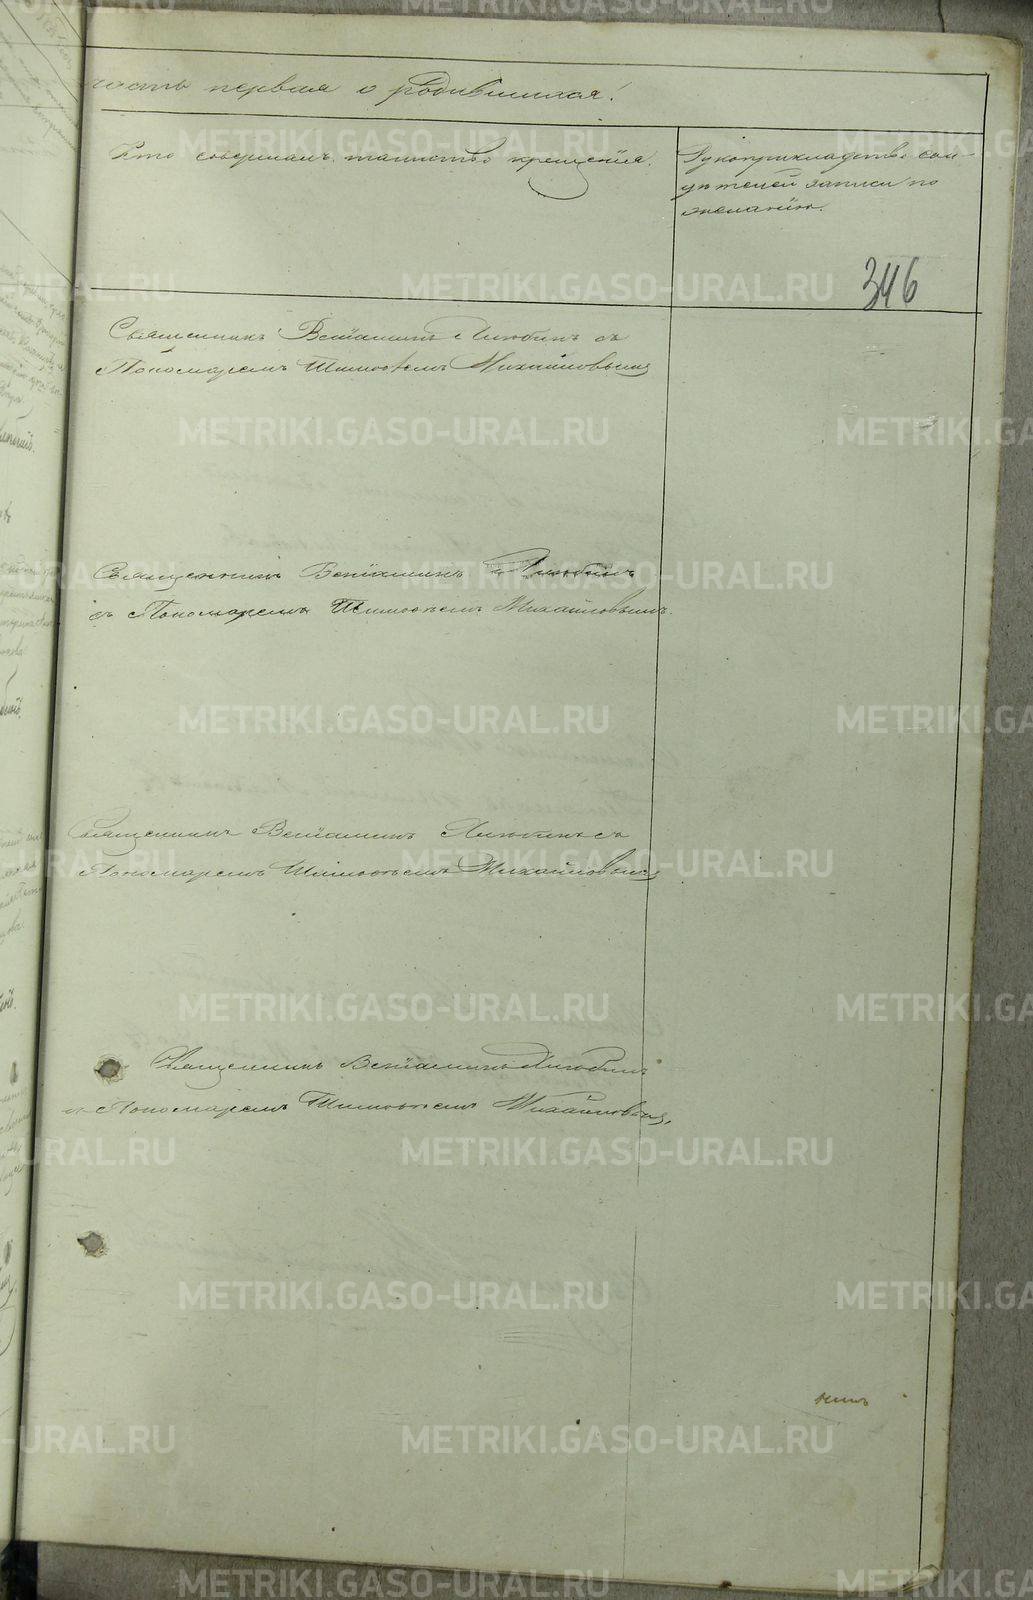 часть первая о родившихся.
Кто совершалъ таинство крещенія.
Рукоприкладство сви-
дѣтелей записи по
желанію.
346
Священникъ Веніаминъ Любинъ съ
Пономаремъ Тимоѳеемъ Михайловымъ
Священникъ Веніаминъ Любинъ
съ Пономаремъ Тимоѳеемъ Михайловымъ.
Священникъ Веніаминъ Любинъ съ
Пономаремъ Тимоѳеемъ Михайловымъ
Священникъ Веніаминъ Любинъ
съ Пономаремъ Тимоѳеемъ Михайловымъ.
METRIKI.GASO-URAL.RU